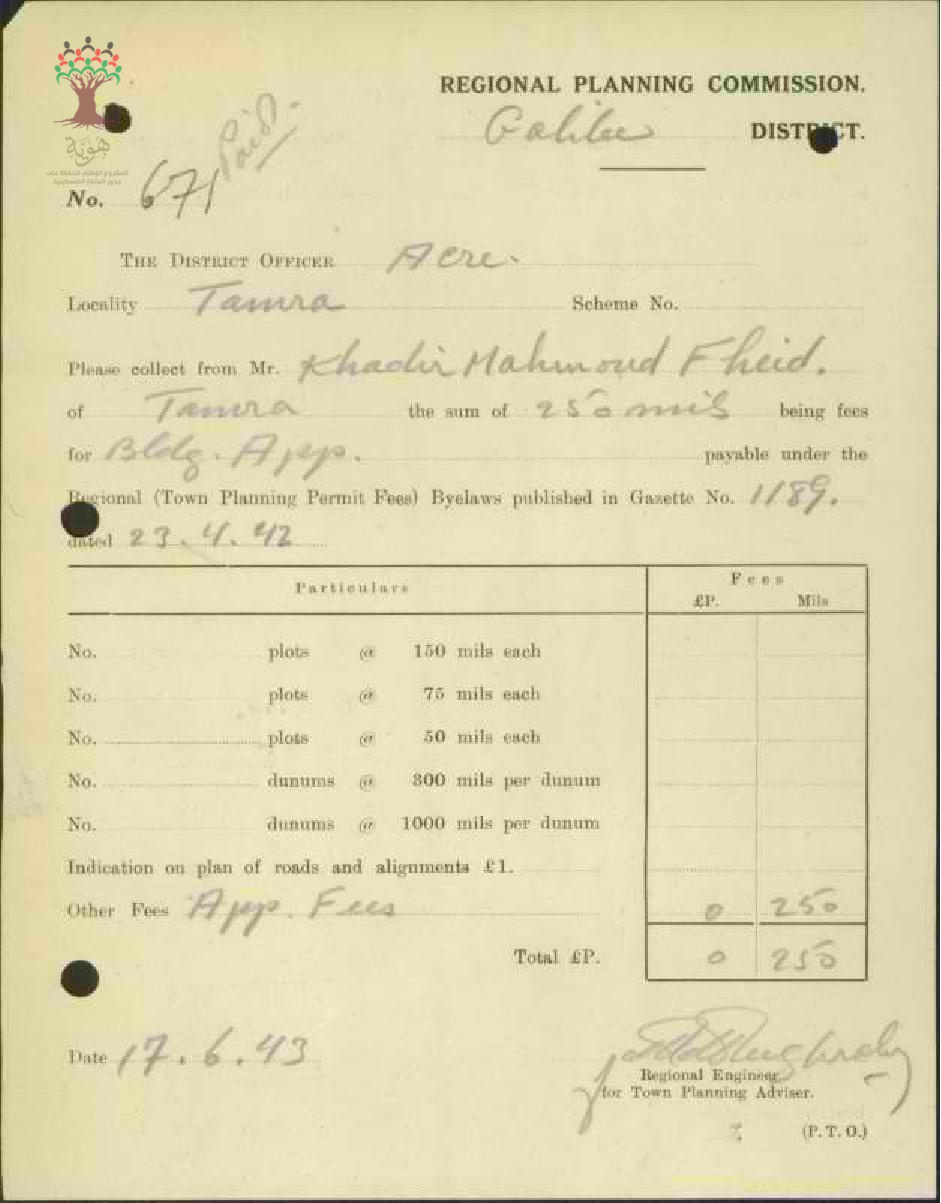 هوية
المشروع الوطني للحفاظ على
جذور العائلة الفلسطينية
REGIONAL PLANNING COMMISSION.
Galilee DISTRICT.
Paid.
No. 671
THE DISTRICT OFFICER Acre.
Locality Tamra Scheme No.
Please collect from Mr. Khadir Mahmoud Fheid.
of Tamra the sum of 250 mils being fees
for Bldg. App. payable under the
Regional (Town Planning Permit Fees) Byelaws published in Gazette No. 1189.
dated 23.4.42
Particulars Fees
£P. Mils
No. plots @ 150 mils each
No. plots @ 75 mils each
No. plots @ 50 mils each
No. dunums @ 300 mils per dunum
No. dunums @ 1000 mils per dunum
Indication on plan of roads and alignments £1.
Other Fees App. Fees 0 250
Total £P. 0 250
Date 17.6.43
Regional Engineer
for Town Planning Adviser.
(P. T. O.)